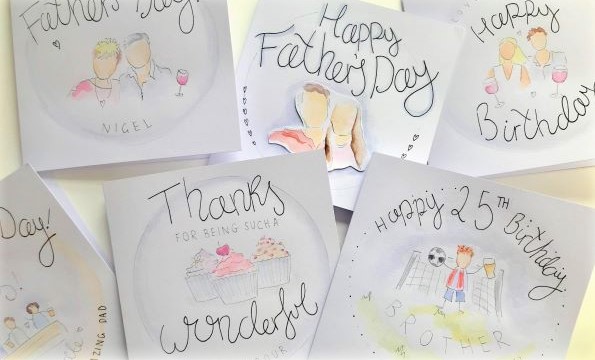 Father's Day!
NIGEL
Happy
Father's Day
Happy
Birthday
Day!
AZING DAD
Thanks
FOR BEING SUCH A
wonderful
Happy 25TH Birthday
BROTHER